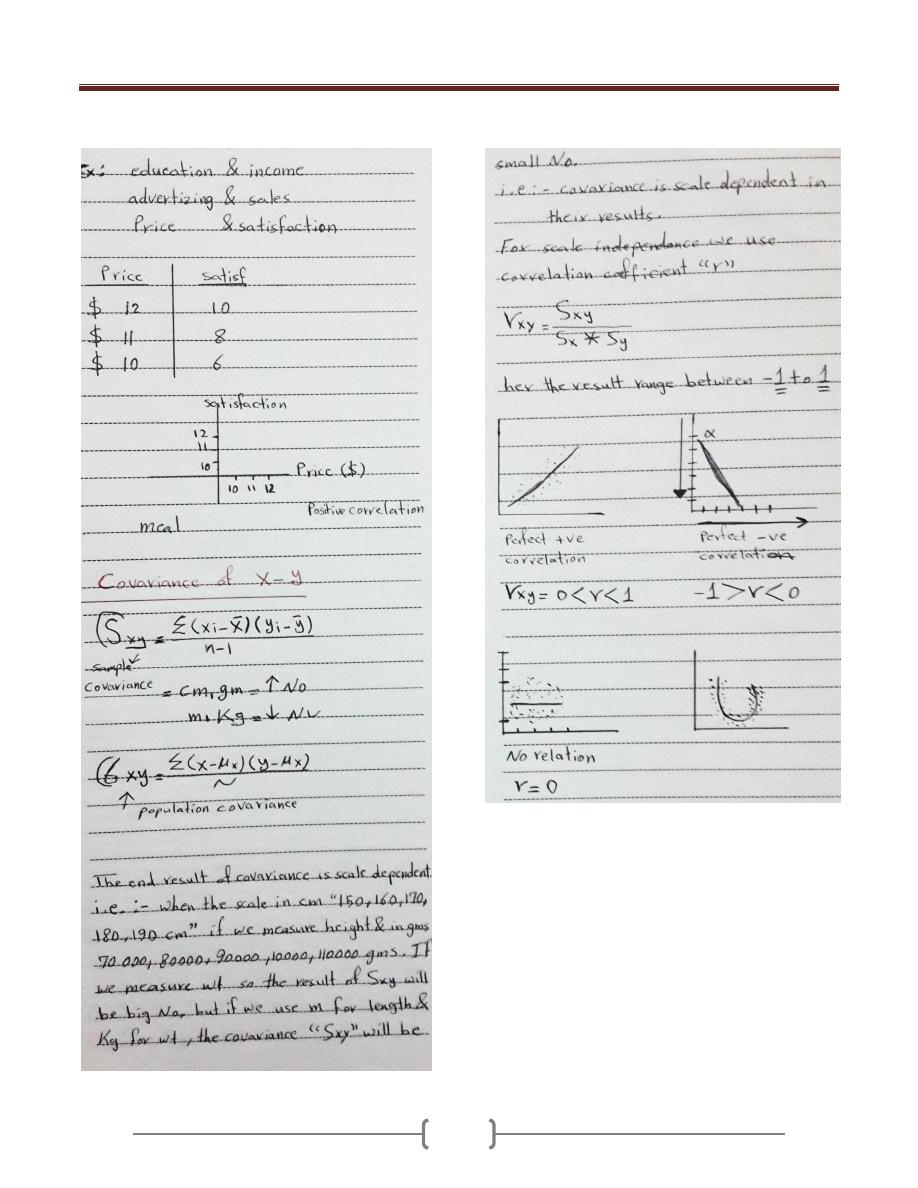 Ex: education & income
advertizing & sales
Price & satisfaction
Price satisf
$ 12 10
$ 11 8
$ 10 6
satisfaction
12
11
10
Price ($)
10 11 12
Positive correlation
Covariance of X-y
Sxy = Σ(xi-x̄)(yi-ȳ)
n-1
sample
Covariance = cm, gm = ↑ No
m, Kg = ↓ No
6xy = Σ(x-μx)(y-μx)
~
↑ population covariance
The end result of covariance is scale dependent
i.e. :- when the scale in cm "150,160,170,
180,190 cm" if we measure height & in gms
70.000, 80000, 90000, 10000, 110000 gms. If
we measure wt so the result of Sxy will
be big No, but if we use m for length &
Kg for wt, the covariance "Sxy" will be
small No.
i.e:- covariance is scale dependent in
their results.
For scale independance we use
correlation cofficient "r"
rxy = Sxy
Sx * Sy
her the result range between -1 to 1
α
Perfect +ve
correlation
Perfect -ve
correlation
rxy = 0<r<1
-1>r<0
No relation
r=0